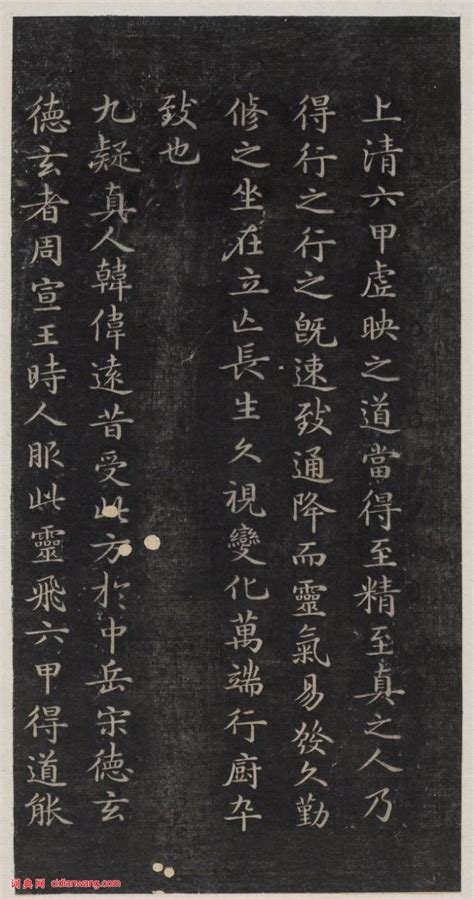 上清六甲虚映之道當得至精至真之人乃
得行之行之既速致通降而靈氣易發久勤
修之坐在立亾長生久視變化萬端行廚卒
致也
九疑真人韓偉遠昔受此方於中岳宋德玄
德玄者周宣王時人服此靈飛六甲得道能
词典网 cidianwang.com